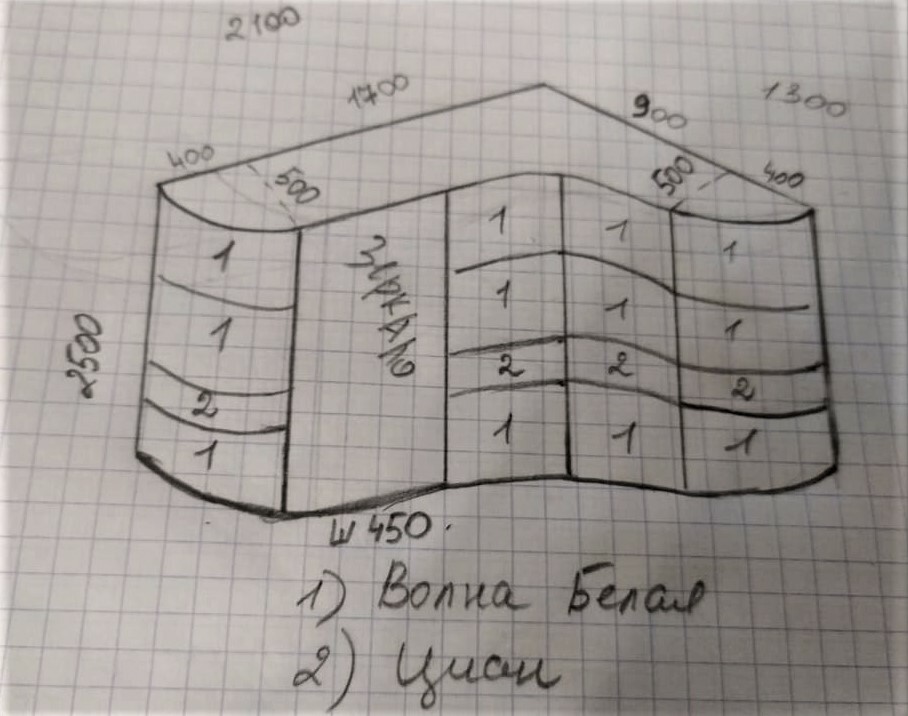 2100
1700
900
1300
400
500
500
400
2500
1
зеркало
1
1
1
1
1
1
1
2
2
2
2
1
1
1
1
Ш 450.
1) Волна Белая
2) Циан